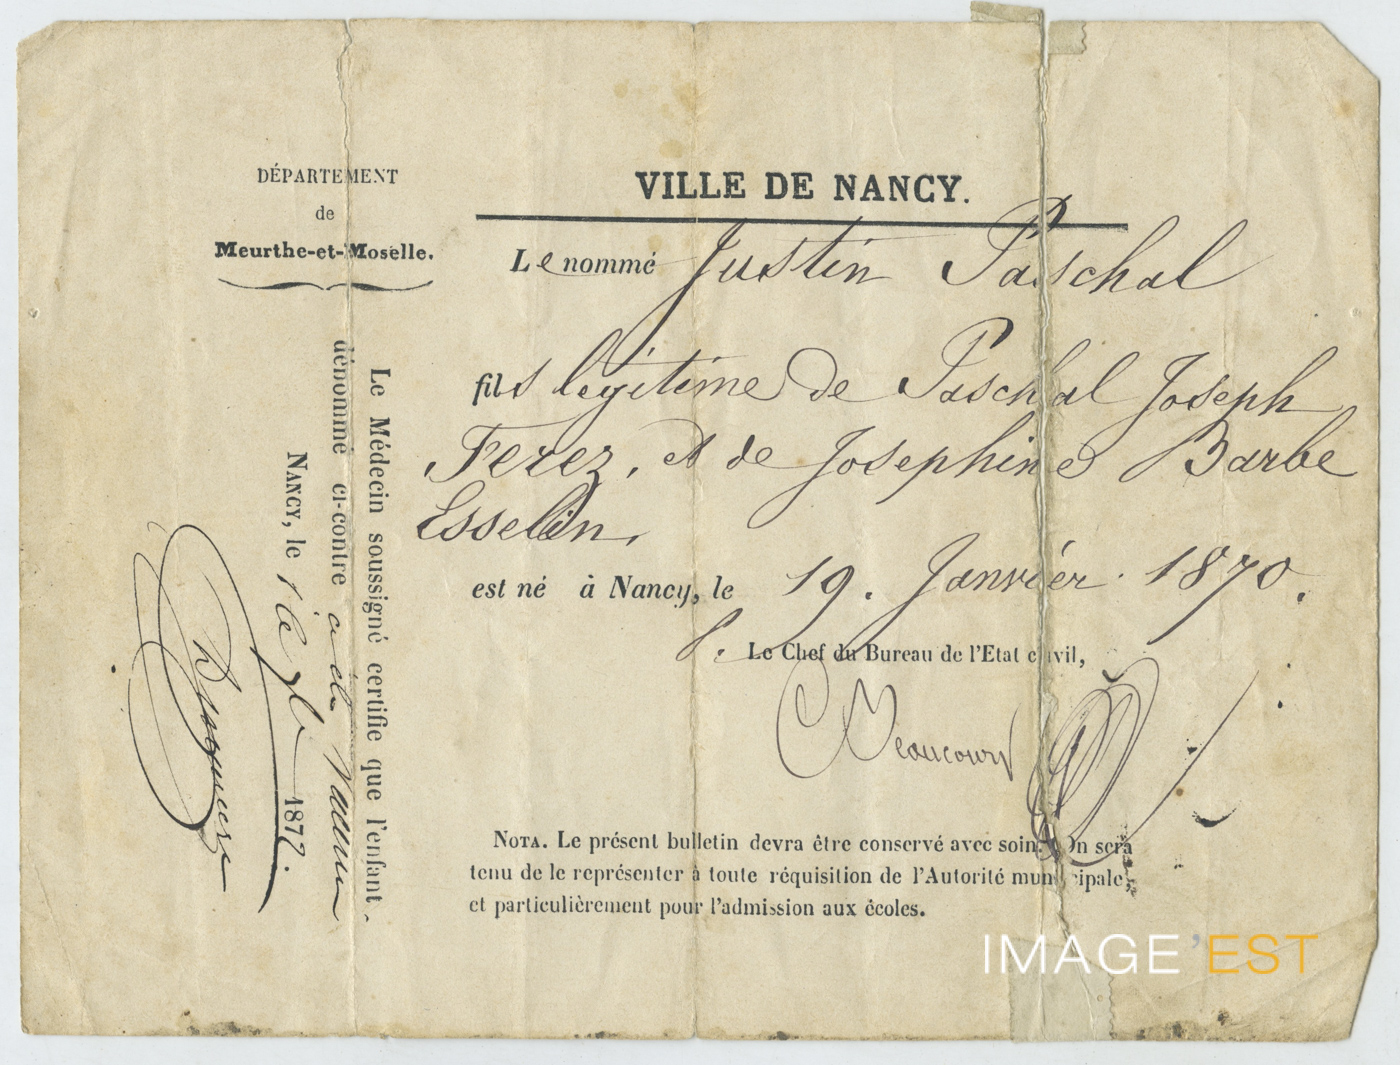 DÉPARTEMENT
de
Meurthe-et-Moselle.
VILLE DE NANCY.
Le nommé Justin Paschal
fils légitime de Paschal Joseph
Ferez, et de Josephine Barbe
Esselin,
est né à Nancy, le 19. Janvier 1870.
Le Chef du Bureau de l'Etat civil,
Beaucourt
NOTA. Le présent bulletin devra être conservé avec soin. On sera
tenu de le représenter à toute réquisition de l'Autorité municipale,
et particulièrement pour l'admission aux écoles.
Le Médecin soussigné certifie que l'enfant
dénommé ci-contre a été Vacciné
NANCY, le 1877.
IMAGE'EST